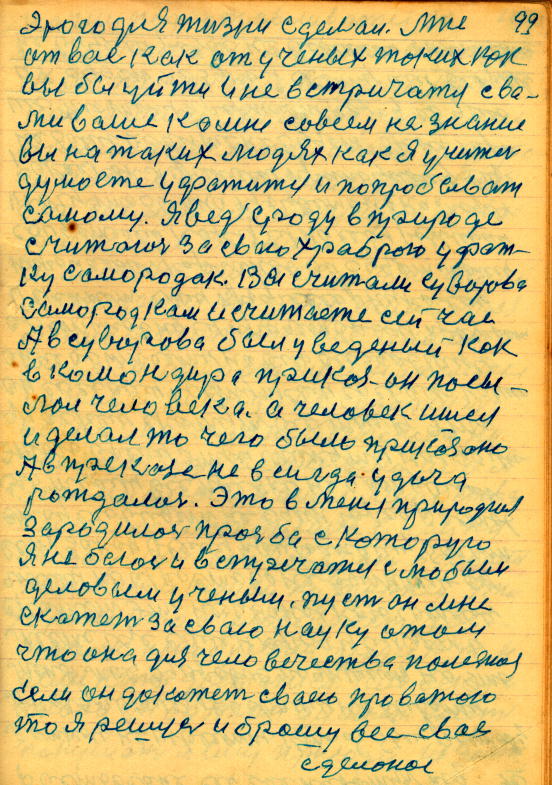 Этого для жизни сделал. Мне 99
от вас как от ученых таких как
вы бы уйти и не встричатя сва-
ми ваше комне совсем не знание
вы на таких людях как я учител
думаете удратитя и попробыват
самому. Я вед сгоду в природе
считаюся за сваю храброю
ку самородак. Вы считали Суворова
саморodkam и считаете сей час
А в суворова был уведеный как
в командира приказ он посы-
лал человека. а человек ишел
и делал то чего было приказано
А в преказе не всигда удача
рождалася. Это в меня природная
зародилася прозба с которую
я не баюся и встричатя с любым
деловым ученым, пуст он мне
скажет за сваю науку отом
что она для человечества полезная
если он докажет сваею правотаю
то я решуся и брошу все свае
сделоное